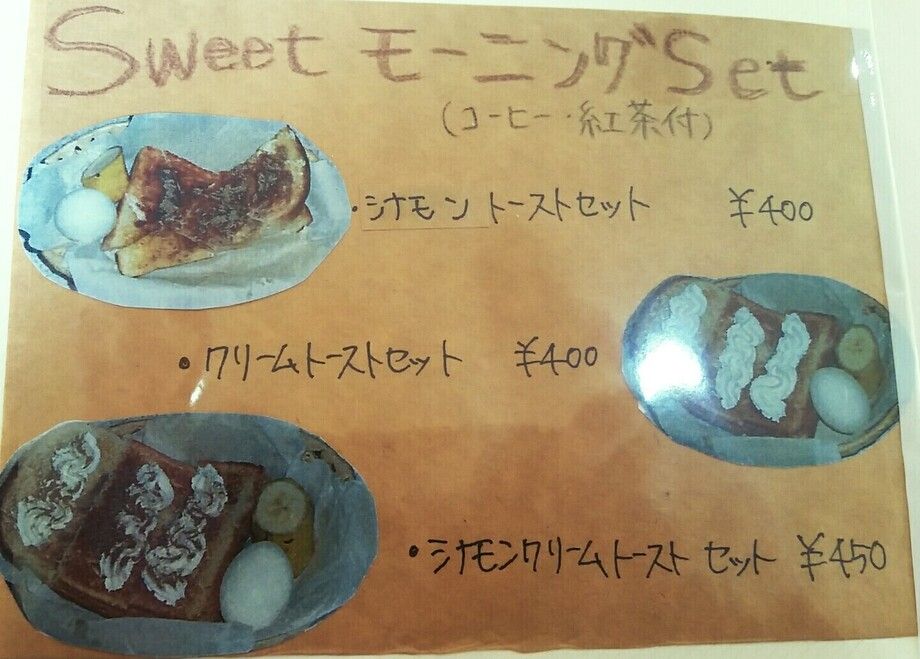 Sweet モーニングSet
(コーヒー・紅茶付)
・シナモントーストセット ¥400
・クリームトーストセット ¥400
・シナモンクリームトーストセット ¥450